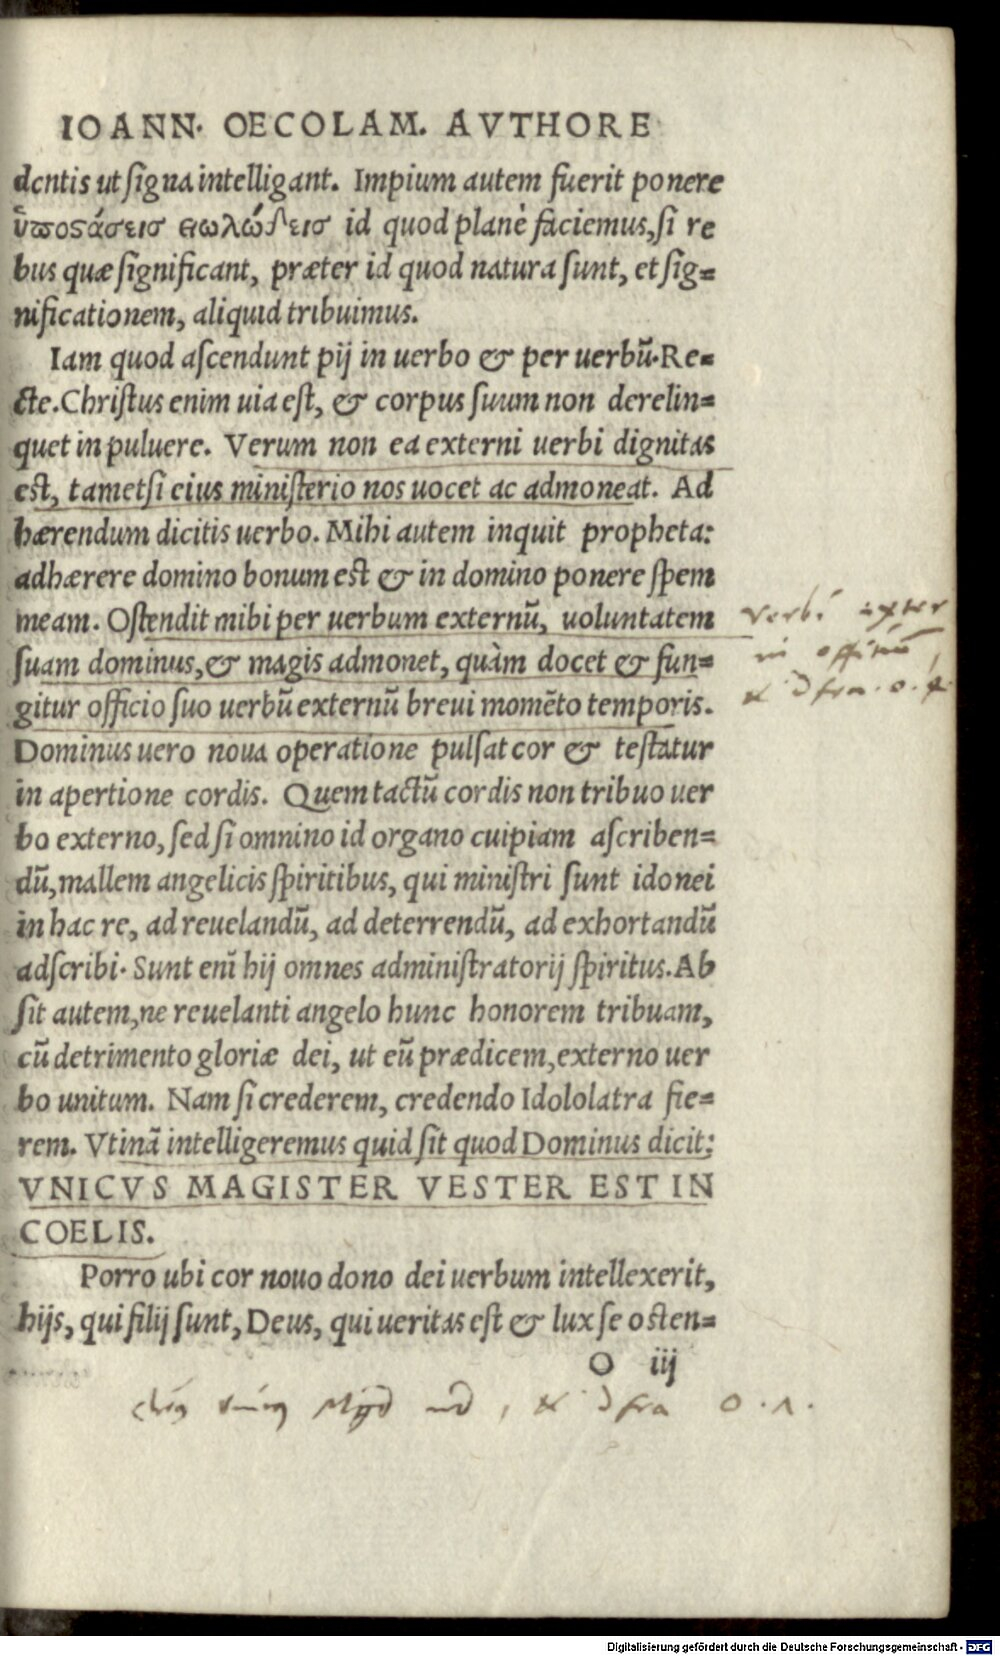 IOANN. OECOLAM. AVTHORE
dentis ut signa intelligant. Impium autem fuerit ponere
id quod planè faciemus, si re
bus quæ significant, præter id quod natura sunt, et sig=
nificationem, aliquid tribuimus.
Iam quod ascendunt pij in uerbo & per uerbũ. Re=
cte. Christus enim uia est, & corpus suum non derelin=
quet in puluere. Verum non ea externi uerbi dignitas
est, tametsi eius ministerio nos uocet ac admoneat. Ad
hærendum dicitis uerbo. Mihi autem inquit propheta:
adhærere domino bonum est & in domino ponere spem
meam. Ostendit mihi per uerbum externũ, uoluntatem
suam dominus, & magis admonet, quàm docet & fun=
gitur officio suo uerbũ externũ breui momẽto temporis.
Dominus uero noua operatione pulsat cor & testatur
in apertione cordis. Quem tactũ cordis non tribuo uer
bo externo, sed si omnino id organo cuipiam ascriben=
dũ, mallem angelicis spiritibus, qui ministri sunt idonei
in hac re, ad reuelandũ, ad deterrendũ, ad exhortandũ
adscribi. Sunt enĩ hij omnes administratorij spiritus. Ab
sit autem, ne reuelanti angelo hunc honorem tribuam,
cũ detrimento gloriæ dei, ut eũ prædicem, externo uer
bo unitum. Nam si crederem, credendo Idololatra fie=
rem. Vtinã intelligeremus quid sit quod Dominus dicit:
VNICVS MAGISTER VESTER EST IN
COELIS.
Porro ubi cor nouo dono dei uerbum intellexerit,
hijs, qui filij sunt, Deus, qui ueritas est & lux se osten=
O iij
Verbi exter
fra o.
Digitalisierung gefördert durch die Deutsche Forschungsgemeinschaft - DFG